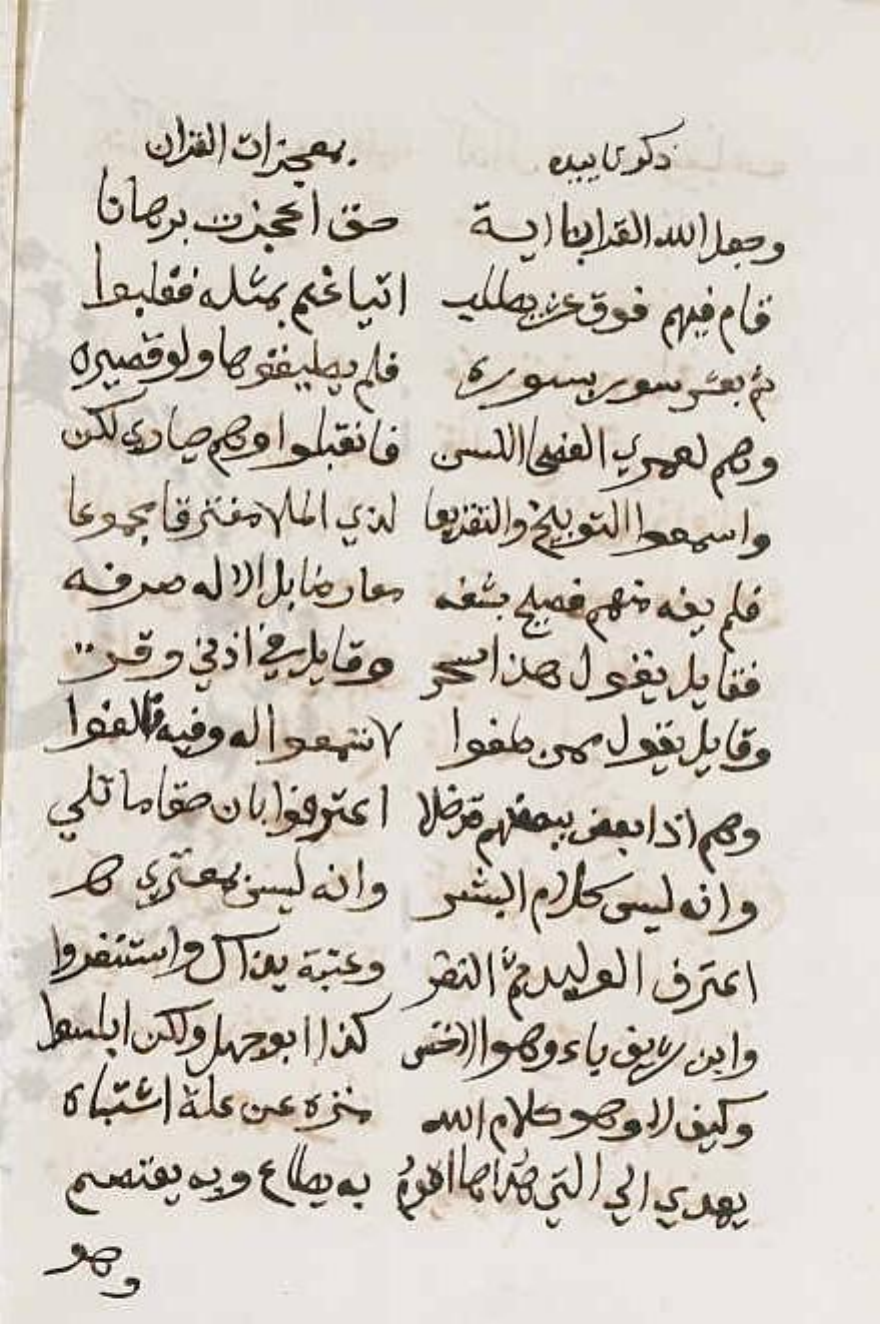 ذكر تاييده بمعجزات القران
وجعل الله القران اية حق اعجزت برهانا
قام فيهم فوق عشر يطلب اتيانهم بمثله فغلبوا
ثم بعشر سور بسوره فلم يطيقوها ولو قصيره
وهم لعمري الفصحا اللسن فانقلبوا وهم حيارى لكن
واسمعوا التوبيخ والتقريعا لذي الملا مفترقا مجموعا
فلم يفه منهم فصيح بشفه معارضا بل الاله صرفه
فقايل يقول هذا سحر وقايل في اذني وقر
وقايل يقول ممن طغوا لا تسمعوا له وفيه فالغوا
وهم اذا بعض ببعضهم قد خلا اعترفوا بان حقا ما تلي
وانه ليس كلام البشر وانه ليس بمفتري
اعترف الوليد ثم النضر وعتبة بذاك واستنفروا
وابن شريق باء وهو الاخنس كذا ابو جهل ولكن ابلسوا
وكيف لا وهو كلام الله منزه عن علة اشتباه
يهدي الي التي هداها اقوم به يطاع وبه يعتصم
وهو